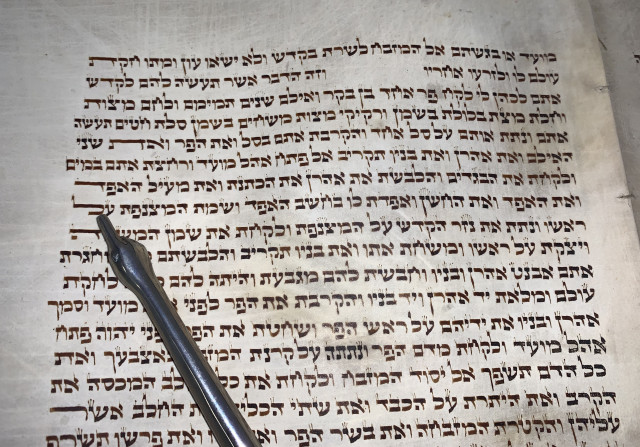 מועד או בגשתם אל המזבח לשרת בקדש ולא ישאו עון ומתו חקת
עולם לו ולזרעו אחריו וזה הדבר אשר תעשה להם לקדש
אתם לכהן לי לקח פר אחד בן בקר ואילם שנים תמימם ולחם מצות
וחלת מצת בלולת בשמן ורקיקי מצות משחים בשמן סלת חטים תעשה
אתם ונתת אותם על סל אחד והקרבת אתם בסל ואת הפר ואת שני
האילם ואת אהרן ואת בניו תקריב אל פתח אהל מועד ורחצת אתם במים
ולקחת את הבגדים והלבשת את אהרן את הכתנת ואת מעיל האפד
ואת האפד ואת החשן ואפדת לו בחשב האפד ושמת המצנפת על
ראשו ונתת את נזר הקדש על המצנפת ולקחת את שמן
ויצקת על ראשו ומשחת אתו ואת בניו תקריב והלבשתם וחגרת
אתם אבנט אהרן ובניו וחבשת להם מגבעת והיתה להם לחקת
עולם ומלאת יד אהרן ויד בניו והקרבת את הפר לפני מועד וסמך
אהרן ובניו את ידיהם על ראש הפר ושחטת את הפר יהוה פתח
אהל מועד ולקחת מדם הפר ונתתה על קרנת המזבח ואת
כל הדם תשפך אל יסוד המזבח ולקחת את כל המכסה את
הקרב ואת היתרת על הכבד ואת שתי החלב אשר
עליהן והקטרת המזבחה ואת בשר הפר ואת פרשו תשרף